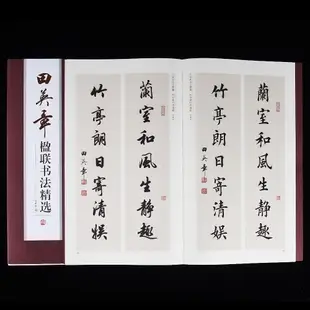 田英章
楹联书法精选
蘭室和風生静趣
竹亭朗日寄清娱
田英章
蘭室和風生静趣
竹亭朗日寄清娱
田英章